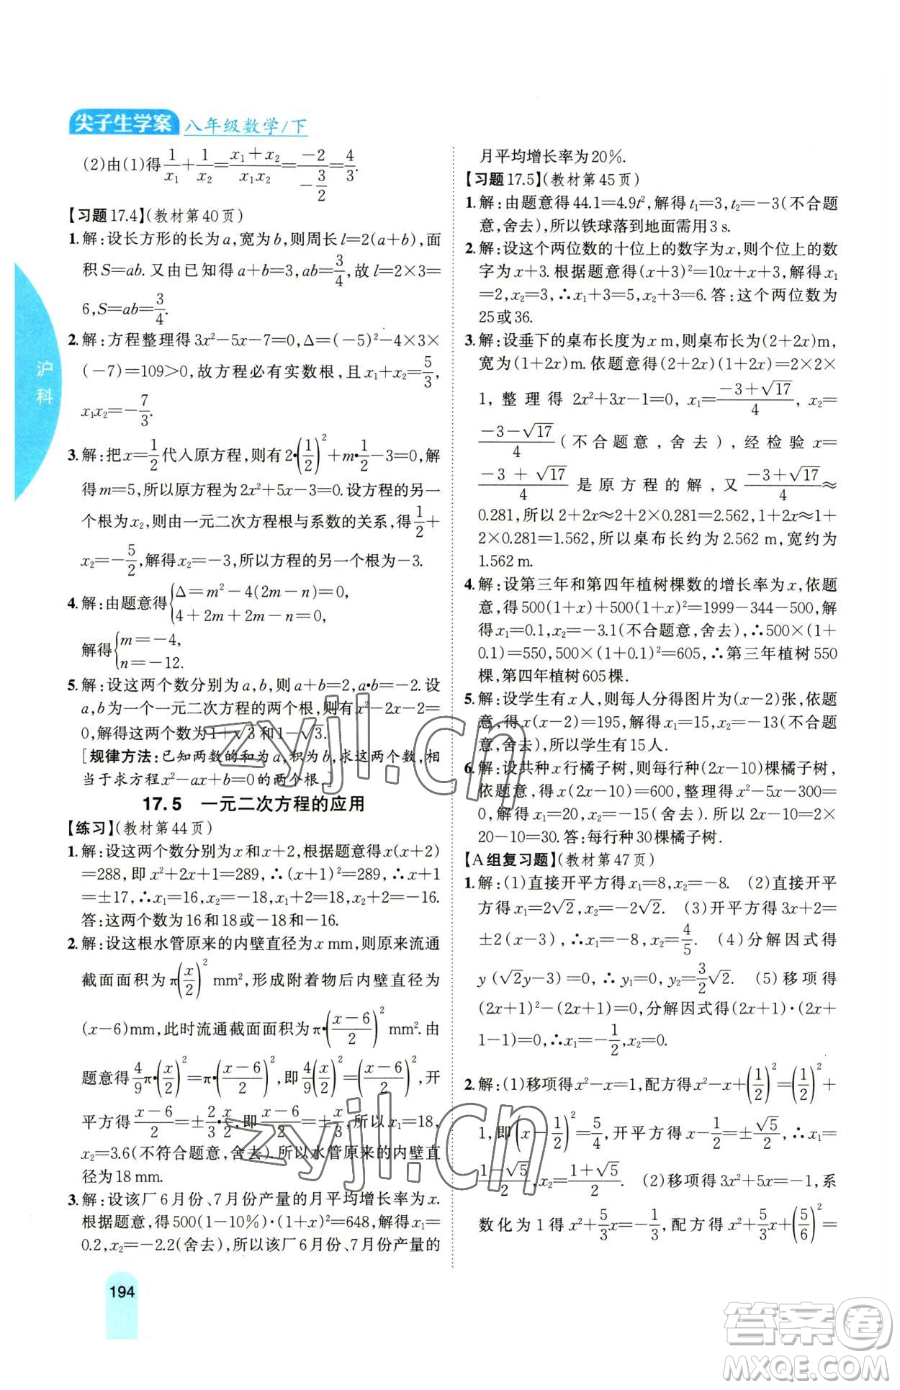 尖子生学案 八年级数学/下
(2)由(1)得 1/x₁+1/x₂=(x₁+x₂)/(x₁x₂)=(-2)/(-3/2)=4/3.
【习题17.4】(教材第40页)
1.解:设长方形的长为a,宽为b,则周长l=2(a+b),面
积S=ab.又由已知得a+b=3,ab=3/4,故l=2×3=
6,S=ab=3/4.
2.解:方程整理得3x²-5x-7=0,Δ=(-5)²-4×3×
(-7)=109>0,故方程必有实数根,且x₁+x₂=5/3,
x₁x₂=-7/3.
3.解:把x=1/2代入原方程,则有2·(1/2)²+m·1/2-3=0,解
得m=5,所以原方程为2x²+5x-3=0.设方程的另一
个根为x₂,则由一元二次方程根与系数的关系,得1/2+
x₂=-5/2,解得x₂=-3,所以方程的另一个根为-3.
4.解:由题意得{Δ=m²-4(4m-2n)=0, 4+2m+2n=4m-2n,
解得{m=-4, n=-12.
5.解:设这两个数分别为a,b,则a+b=2,a·b=-2.设
a,b为一个一元二次方程的两个根,则有x²-2x-2=0,
解得这两个数为1+√3和1-√3.
[规律方法:已知两数的和为a,积为b,求这两个数,相
当于求方程x²-ax+b=0的两个根.]
17.5 一元二次方程的应用
【练习】(教材第44页)
1.解:设这两个数分别为x和x+2,根据题意得x(x+2)
=288,即x²+2x+1=289,∴(x+1)²=289,∴x+1
=±17,∴x₁=16,x₂=-18,∴x+2=18或x+2=-16.
答:这两个数为16和18或-18和-16.
2.解:设这根水管原来的内壁直径为x mm,则原来流通
截面面积为π(x/2)² mm²,形成附着物后内壁直径为
(x-6)mm,此时流通截面面积为π·((x-6)/2)² mm².由
题意得4/9π·(x/2)²=π·((x-6)/2)²,即4/9(x/2)²=((x-6)/2)²,开
平方得(x-6)/2=±2/3·x/2,即x-6=±2/3x,所以x₁=18,
x₂=3.6(不符合题意,舍去).所以水管原来的内壁直
径为18 mm.
3.解:设该厂6月份、7月份产量的月平均增长率为x.
根据题意,得500(1-10%)(1+x)²=648,解得x₁=
0.2,x₂=-2.2(舍去),所以该厂6月份、7月份产量的
月平均增长率为20%.
【习题17.5】(教材第45页)
1.解:由题意得44.1=4.9t²,解得t₁=3,t₂=-3(不合题
意,舍去),所以铁球落到地面需用3 s.
2.解:设这个两位数的十位上的数字为x,则个位上的数
字为x+3.根据题意得(x+3)²=10x+x+3,解得x₁
=2,x₂=3,∴x₁+3=5,x₂+3=6.答:这个两位数为
25或36.
3.解:设垂下的桌布长度为x m,则桌布长为(2+2x)m,
宽为(1+2x)m.依题意得(2+2x)(1+2x)=2×2×
1,整理得2x²+3x-1=0,解得x₁=(-3+√17)/4,x₂=
(-3-√17)/4(不合题意,舍去),经检验x=
(-3+√17)/4是原方程的解,又(-3+√17)/4≈
0.281,所以2+2x≈2+2×0.281=2.562,1+2x≈
1+2×0.281=1.562,所以桌布长约为2.562 m,宽约为
1.562 m.
4.解:设第三年和第四年植树棵数的增长率为x,依题
意,得500(1+x)+500(1+x)²=1999-344-500,
解得x₁=0.1,x₂=-3.1(不合题意,舍去),∴500×(1+
0.1)=550,500×(1+0.1)²=605,∴第三年植树550
棵,第四年植树605棵.
5.解:设学生有x人,则每人分得图片为(x-2)张,依题
意,得x(x-2)=195,解得x₁=15,x₂=-13(不合题
意,舍去),所以学生有15人.
6.解:设共种x行橘子树,则每行种(2x-10)棵橘子树,
依题意,得x(2x-10)=600,整理得x²-5x-300=0,
解得x₁=20,x₂=-15(不合题意,舍去),∴2x-10=2×
20-10=30.答:每行种30棵橘子树.
【A组复习题】(教材第47页)
1.解:(1)直接开平方得x₁=8,x₂=-8. (2)直接开平
方得x₁=2√2,x₂=-2√2. (3)开平方得3x+2=
±2(x-3),∴x₁=-8,x₂=4/5. (4)分解因式得
y(√2y-3)=0,∴y₁=0,y₂=3/2√2. (5)移项得
(2x+1)²-(2x+1)=0,分解因式得(2x+1)·(2x+
1-1)=0,∴x₁=-1/2,x₂=0.
2.解:(1)移项得x²-x=1,配方得x²-x+(1/2)²=(1/2)²+
1,即(x-1/2)²=5/4,开平方得x-1/2=±√5/2,∴x₁=
1/2+√5/2,x₂=1/2-√5/2. (2)移项得3x²+5x=-1,系
数化为1得x²+5/3x=-1/3,配方得x²+5/3x+(5/6)²=
沪
科
194
zyjl.cn
zyjl.cn
答案圈
MXQE.COM